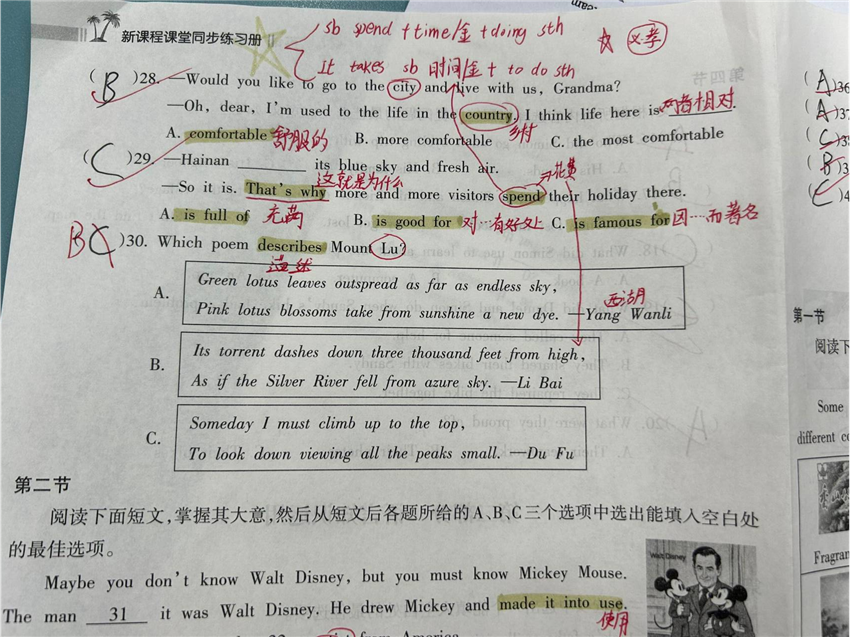 新课程课堂同步练习册
sb spend +time/金 +doing sth
必考
It takes sb 时间/金 + to do sth
(B)28. —Would you like to go to the city and live with us, Grandma?
—Oh, dear, I'm used to the life in the country. I think life here is 两者相对
A. comfortable 舒服的 B. more comfortable 乡村 C. the most comfortable
(C)29. —Hainan ________ its blue sky and fresh air.
这就是为什么 →花费
—So it is. That's why more and more visitors spend their holiday there.
A. is full of 充满 B. is good for 对…有好处 C. is famous for 因…而著名
B(C)30. Which poem describes Mount Lu?
描述
A. Green lotus leaves outspread as far as endless sky,
西湖
Pink lotus blossoms take from sunshine a new dye. —Yang Wanli
B. Its torrent dashes down three thousand feet from high,
As if the Silver River fell from azure sky. —Li Bai
C. Someday I must climb up to the top,
To look down viewing all the peaks small. —Du Fu
第二节
阅读下面短文,掌握其大意,然后从短文后各题所给的A、B、C三个选项中选出能填入空白处
的最佳选项。
Maybe you don't know Walt Disney, but you must know Mickey Mouse.
The man 31 it was Walt Disney. He drew Mickey and made it into use.
使用
from America
Walt Disney
(A)36
(A)37
(C)3
(B)3
(C)4
第一节
阅读下
Some
different co
Fragran